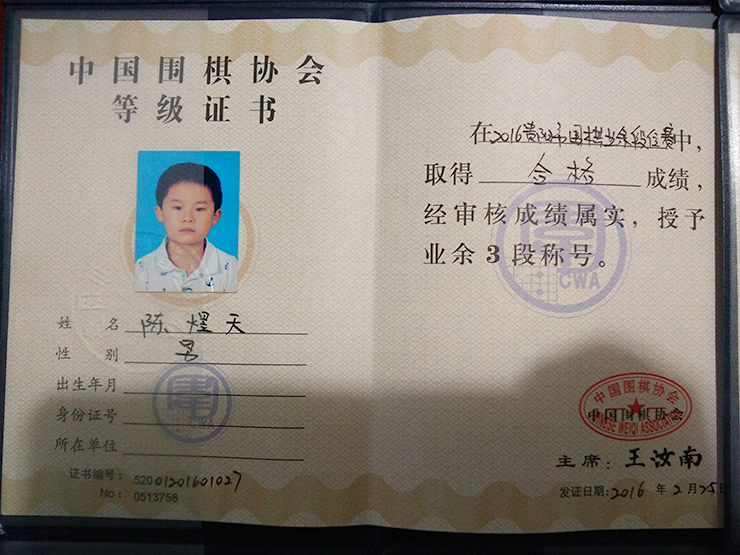 中国围棋协会
等级证书
姓 名 陈煋天
性 别 男
出生年月
身份证号
所在单位
证书编号: 52001201601027
No: 0513758
在2016贵阳市围棋业余段位赛中,
取得 合格 成绩,
经审核成绩属实,授予
业余3段称号。
CWA
中国围棋协会
中国围棋协会
CHINESE WEIQI ASSOCIATION
主席: 王汝南
发证日期: 2016 年 2 月 25日